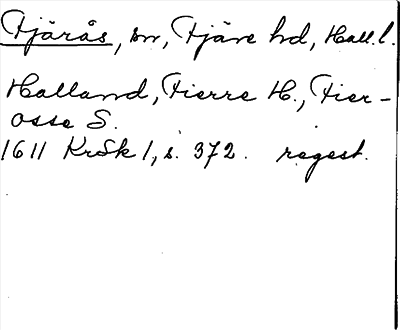 Fjärås, sn, Fjäre hd, Hall.l.
Halland, Fierre H., Fier-
osse S.
1611 KrSk 1, s. 372. regest.